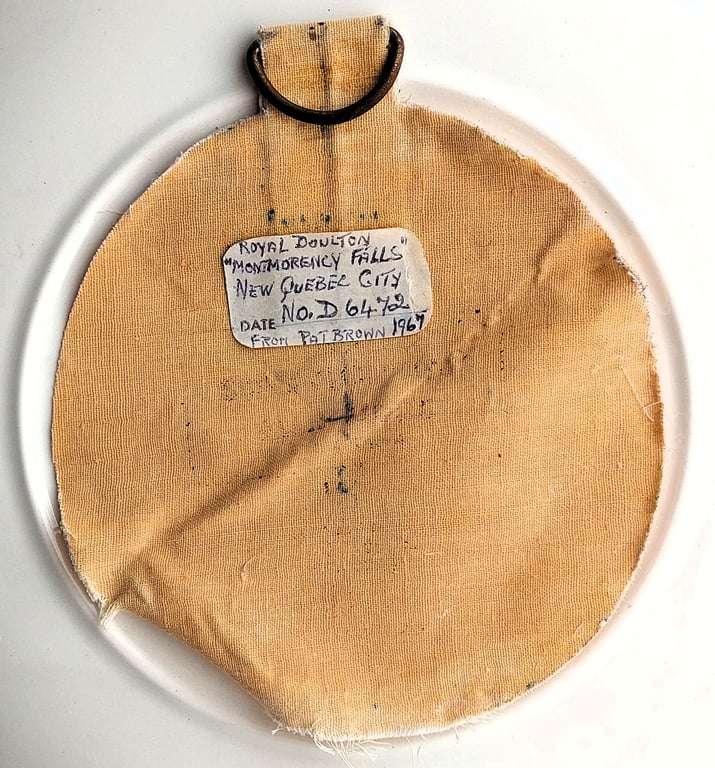 ROYAL DOULTON
"MONTMORENCY FALLS"
NEW QUEBEC CITY
DATE NO. D 6472
FROM PAT BROWN 1967